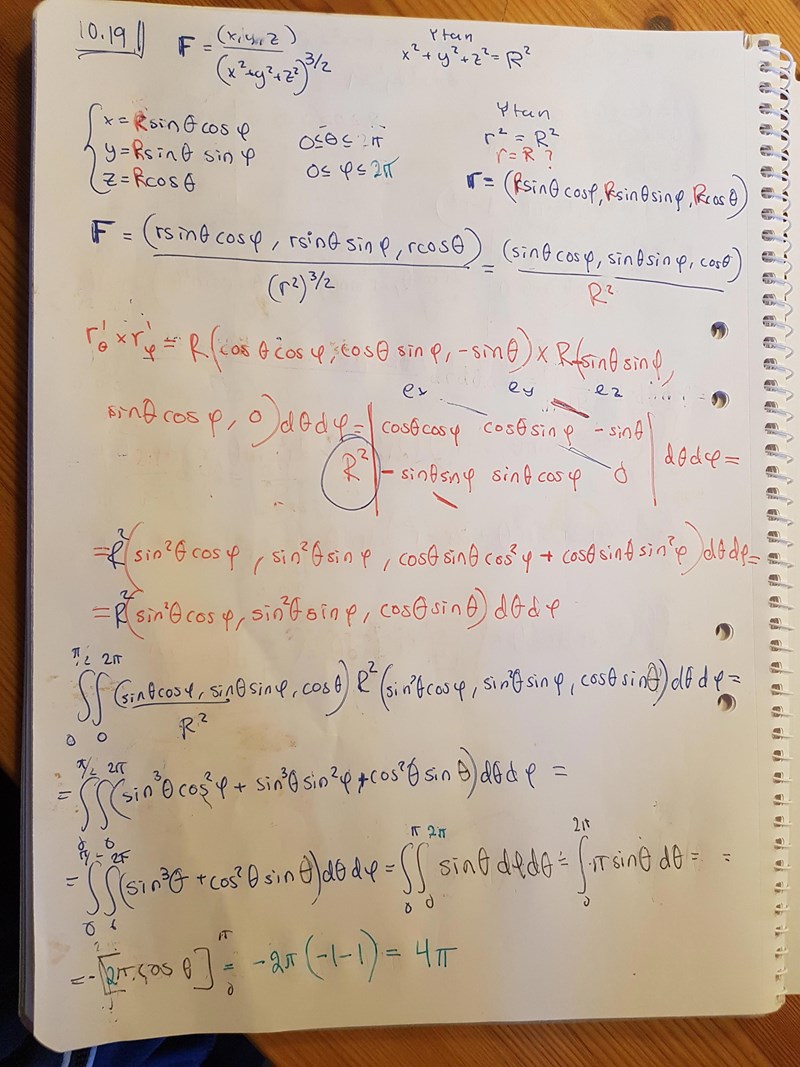 10.19 F = (x, y, z) / (x²+y²+z²)^3/2 Ytan x²+y²+z² = R²
{ x = R sinθ cosφ 0≤θ≤2π Ytan
y = R sinθ sinφ 0≤φ≤2π r² = R²
z = R cosθ r = R ?
r = (R sinθ cosφ, R sinθ sinφ, R cosθ)
F = (r sinθ cosφ, r sinθ sinφ, r cosθ) / (r²)^3/2 = (sinθ cosφ, sinθ sinφ, cosθ) / R²
r'θ × r'φ = R(cosθ cosφ, cosθ sinφ, -sinθ) × R(-sinθ sinφ,
ex ey ez
sinθ cosφ, 0)dθdφ = R² | cosθcosφ cosθsinφ -sinθ |
| -sinθsnφ sinθcosφ 0 | dθdφ =
= R²(sin²θ cosφ, sin²θ sinφ, cosθ sinθ cos²φ + cosθ sinθ sin²φ)dθdφ =
= R²(sin²θ cosφ, sin²θ sinφ, cosθ sinθ) dθdφ
∫∫ (sinθcosφ, sinθsinφ, cosθ) / R² R²(sin²θcosφ, sin²θsinφ, cosθsinθ)dθdφ =
= ∫∫ (sin³θ cos²φ + sin³θ sin²φ + cos²θ sinθ)dθdφ =
= ∫∫ (sin³θ + cos²θ sinθ)dθdφ = ∫₀^π ∫₀^2π sinθ dφdθ = ∫₀^2π π sinθ dθ = =
= -[2π cosθ]₀^π = -2π(-1-1) = 4π